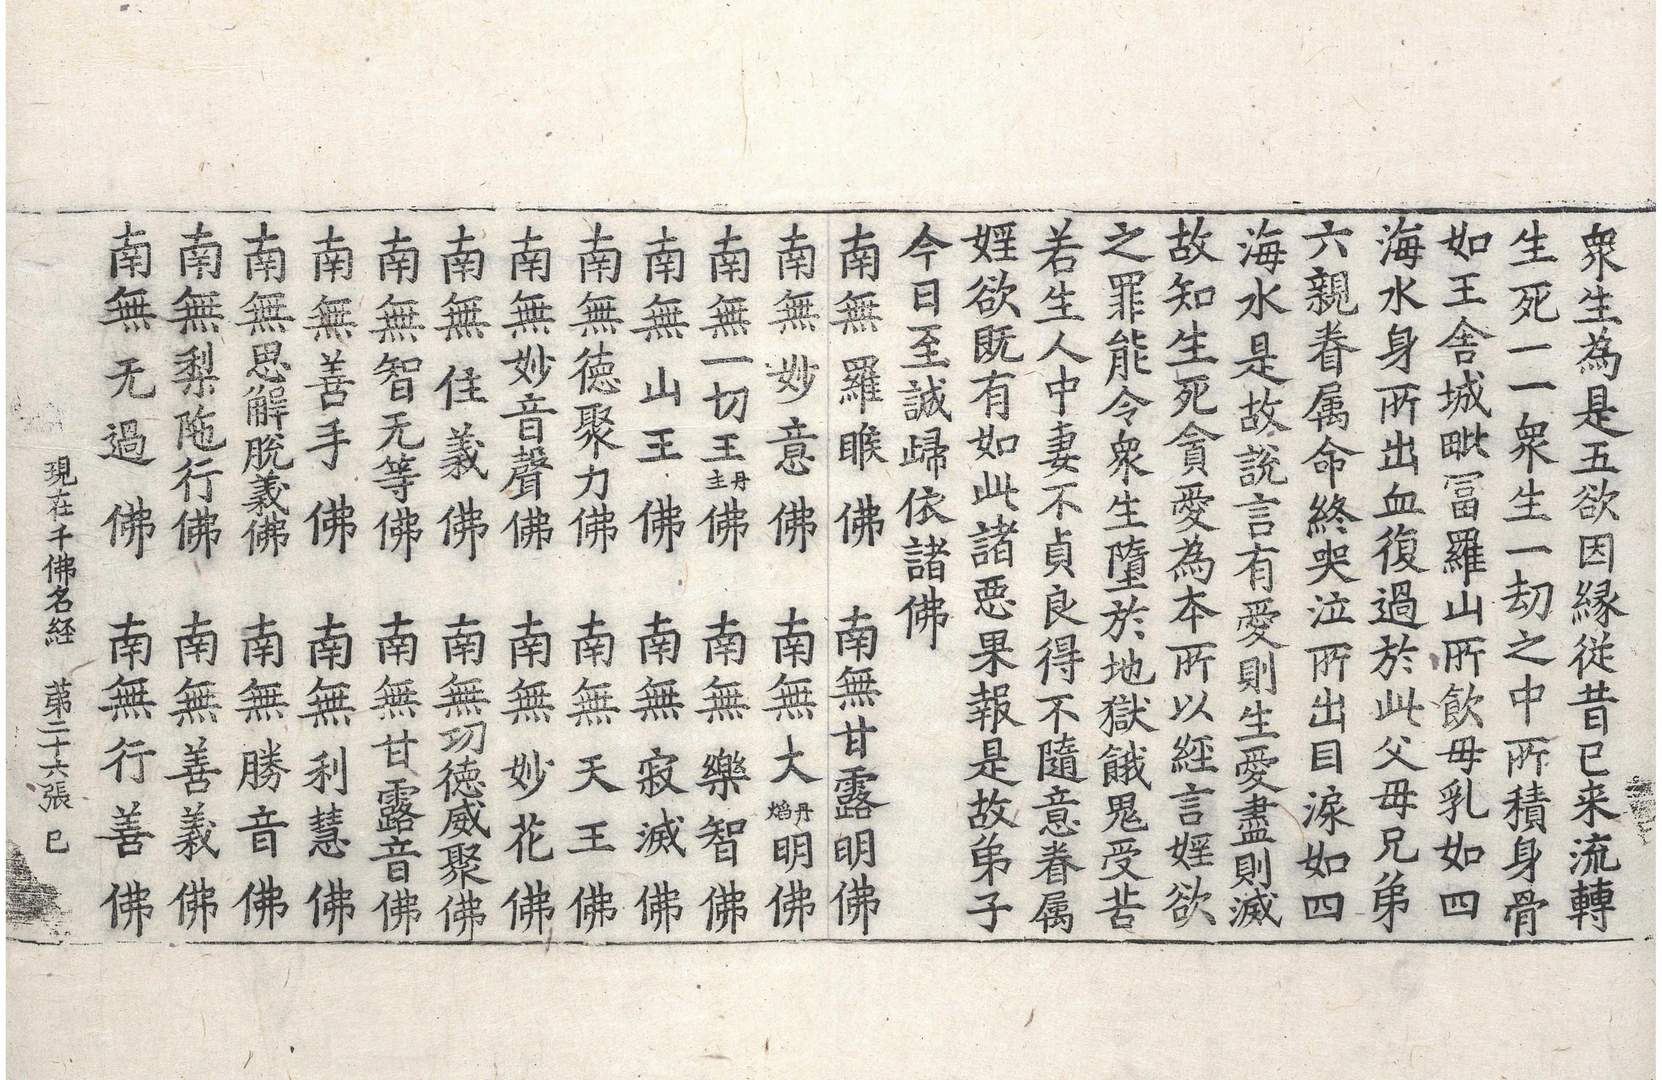 衆生為是五欲因縁従昔已来流轉
生死一一衆生一劫之中所積身骨
如王舍城毗冨羅山所飲母乳如四
海水身所出血復過於此父母兄弟
六親眷属命終哭泣所出目淚如四
海水是故說言有愛則生愛盡則滅
故知生死貪愛為本所以經言婬欲
之罪能令衆生墮於地獄餓鬼受苦
若生人中妻不貞良得不隨意眷属
婬欲既有如此諸惡果報是故弟子
今日至誠歸依諸佛
南無羅睺佛 南無甘露明佛
南無妙意佛 南無大丹焰明佛
南無一切王丹主佛 南無樂智佛
南無山王佛 南無寂滅佛
南無徳聚力佛 南無天王佛
南無妙音聲佛 南無妙花佛
南無住義佛 南無功徳威聚佛
南無智无等佛 南無甘露音佛
南無善手佛 南無利慧佛
南無思解脫義佛 南無勝音佛
南無梨陁行佛 南無善義佛
南無无過佛 南無行善佛
現在千佛名経 苐二十六張 巳